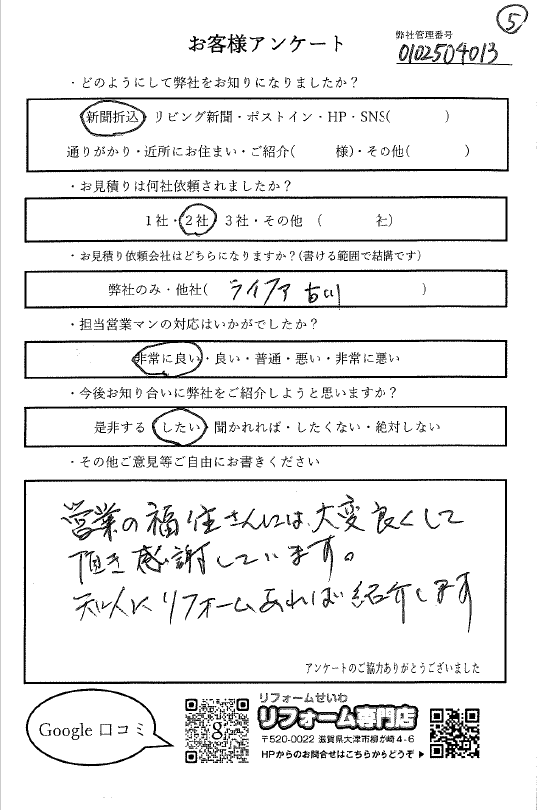 ⑤
お客様アンケート
弊社管理番号
0102504013
・どのようにして弊社をお知りになりましたか？
新聞折込・リビング新聞・ポストイン・HP・SNS(　　　)
通りがかり・近所にお住まい・ご紹介(　　　様)・その他(　　　)
・お見積りは何社依頼されましたか？
1社・2社・3社・その他　(　　　社)
・お見積り依頼会社はどちらになりますか？(書ける範囲で結構です)
弊社のみ・他社(　ライファ　　　)
・担当営業マンの対応はいかがでしたか？
非常に良い・良い・普通・悪い・非常に悪い
・今後お知り合いに弊社をご紹介しようと思いますか？
是非する・したい・聞かれれば・したくない・絶対しない
・その他ご意見等ご自由にお書きください
営業の福住さんには、大変良くして
頂き感謝しています。
知人にリフォームあれば紹介します
アンケートのご協力ありがとうございました
Google 口コミ
g
リフォームせいわ
リフォーム専門店
〒520-0022 滋賀県大津市柳が崎4-6
HPからのお問合せはこちらからどうぞ ▶